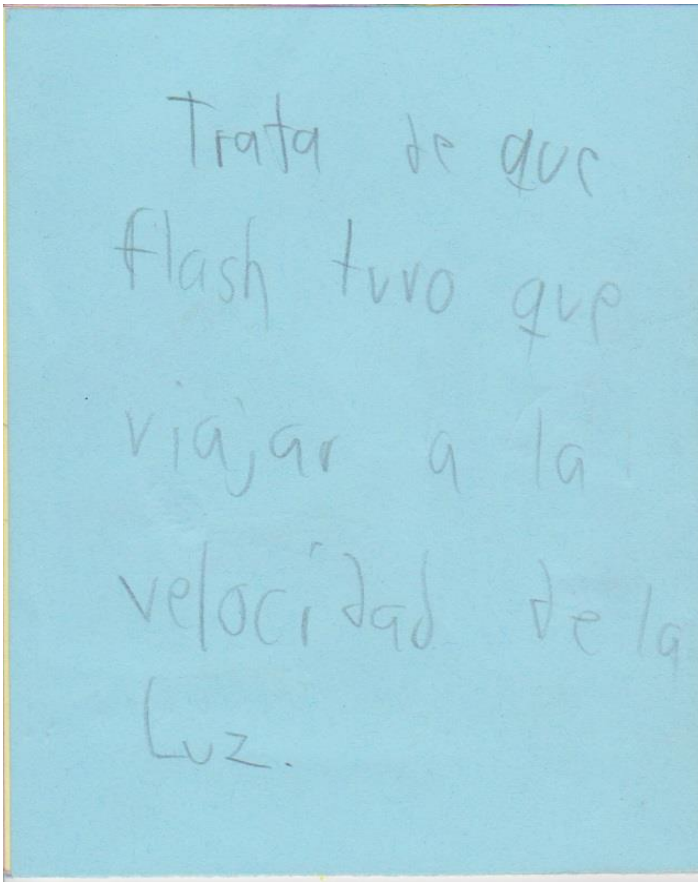 Trata de que
flash tuvo que
viajar a la
velocidad de la
Luz.